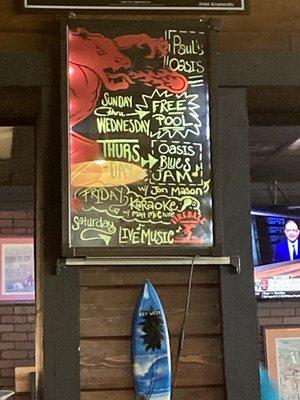 Paul's
Oasis
SUNDAY
thru
WEDNESDAY
FREE
POOL
THURS
DAY
Oasis
Blues
JAM
w/ Jon Mason
FRIDAY
Karaoke
Saturday
LIVE MUSIC
KEY WEST